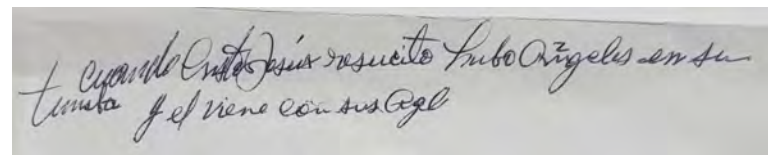 cuando Cristo Jesús resucito hubo Angeles en su
tumba y el viene con sus Agl